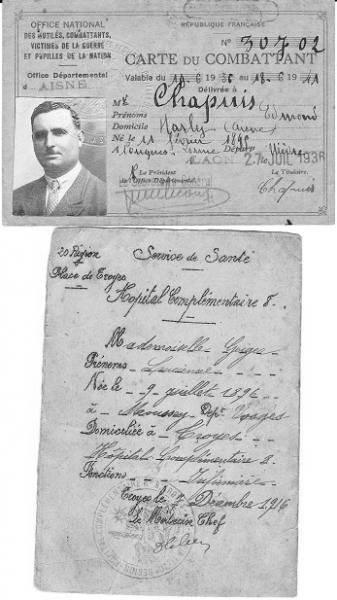 OFFICE NATIONAL
DES MUTILÉS, COMBATTANTS,
VICTIMES DE LA GUERRE
ET PUPILLES DE LA NATION
Office Départemental
AISNE
RÉPUBLIQUE FRANÇAISE
N° 30702
CARTE DU COMBATTANT
Valable du au
Délivrée à
M. Chapuis
Prénoms Edmond
Domicile Marly (Aisne)
Né le 11 février
à Dépt Nièvre
LAON 27 JUIL 1936
Le Président
de l'Office Départemental
Le Titulaire,
Chapuis
20 Région
Place de Troyes
Service de Santé
Hôpital Complémentaire 8.
Mademoiselle
Prénoms
Née le 9 juillet 1896
à Moussey Dépt Vosges
Domiciliée à Troyes
Hôpital Complémentaire 8.
Fonctions Infirmière
Troyes le Décembre 1916
Le Médecin Chef